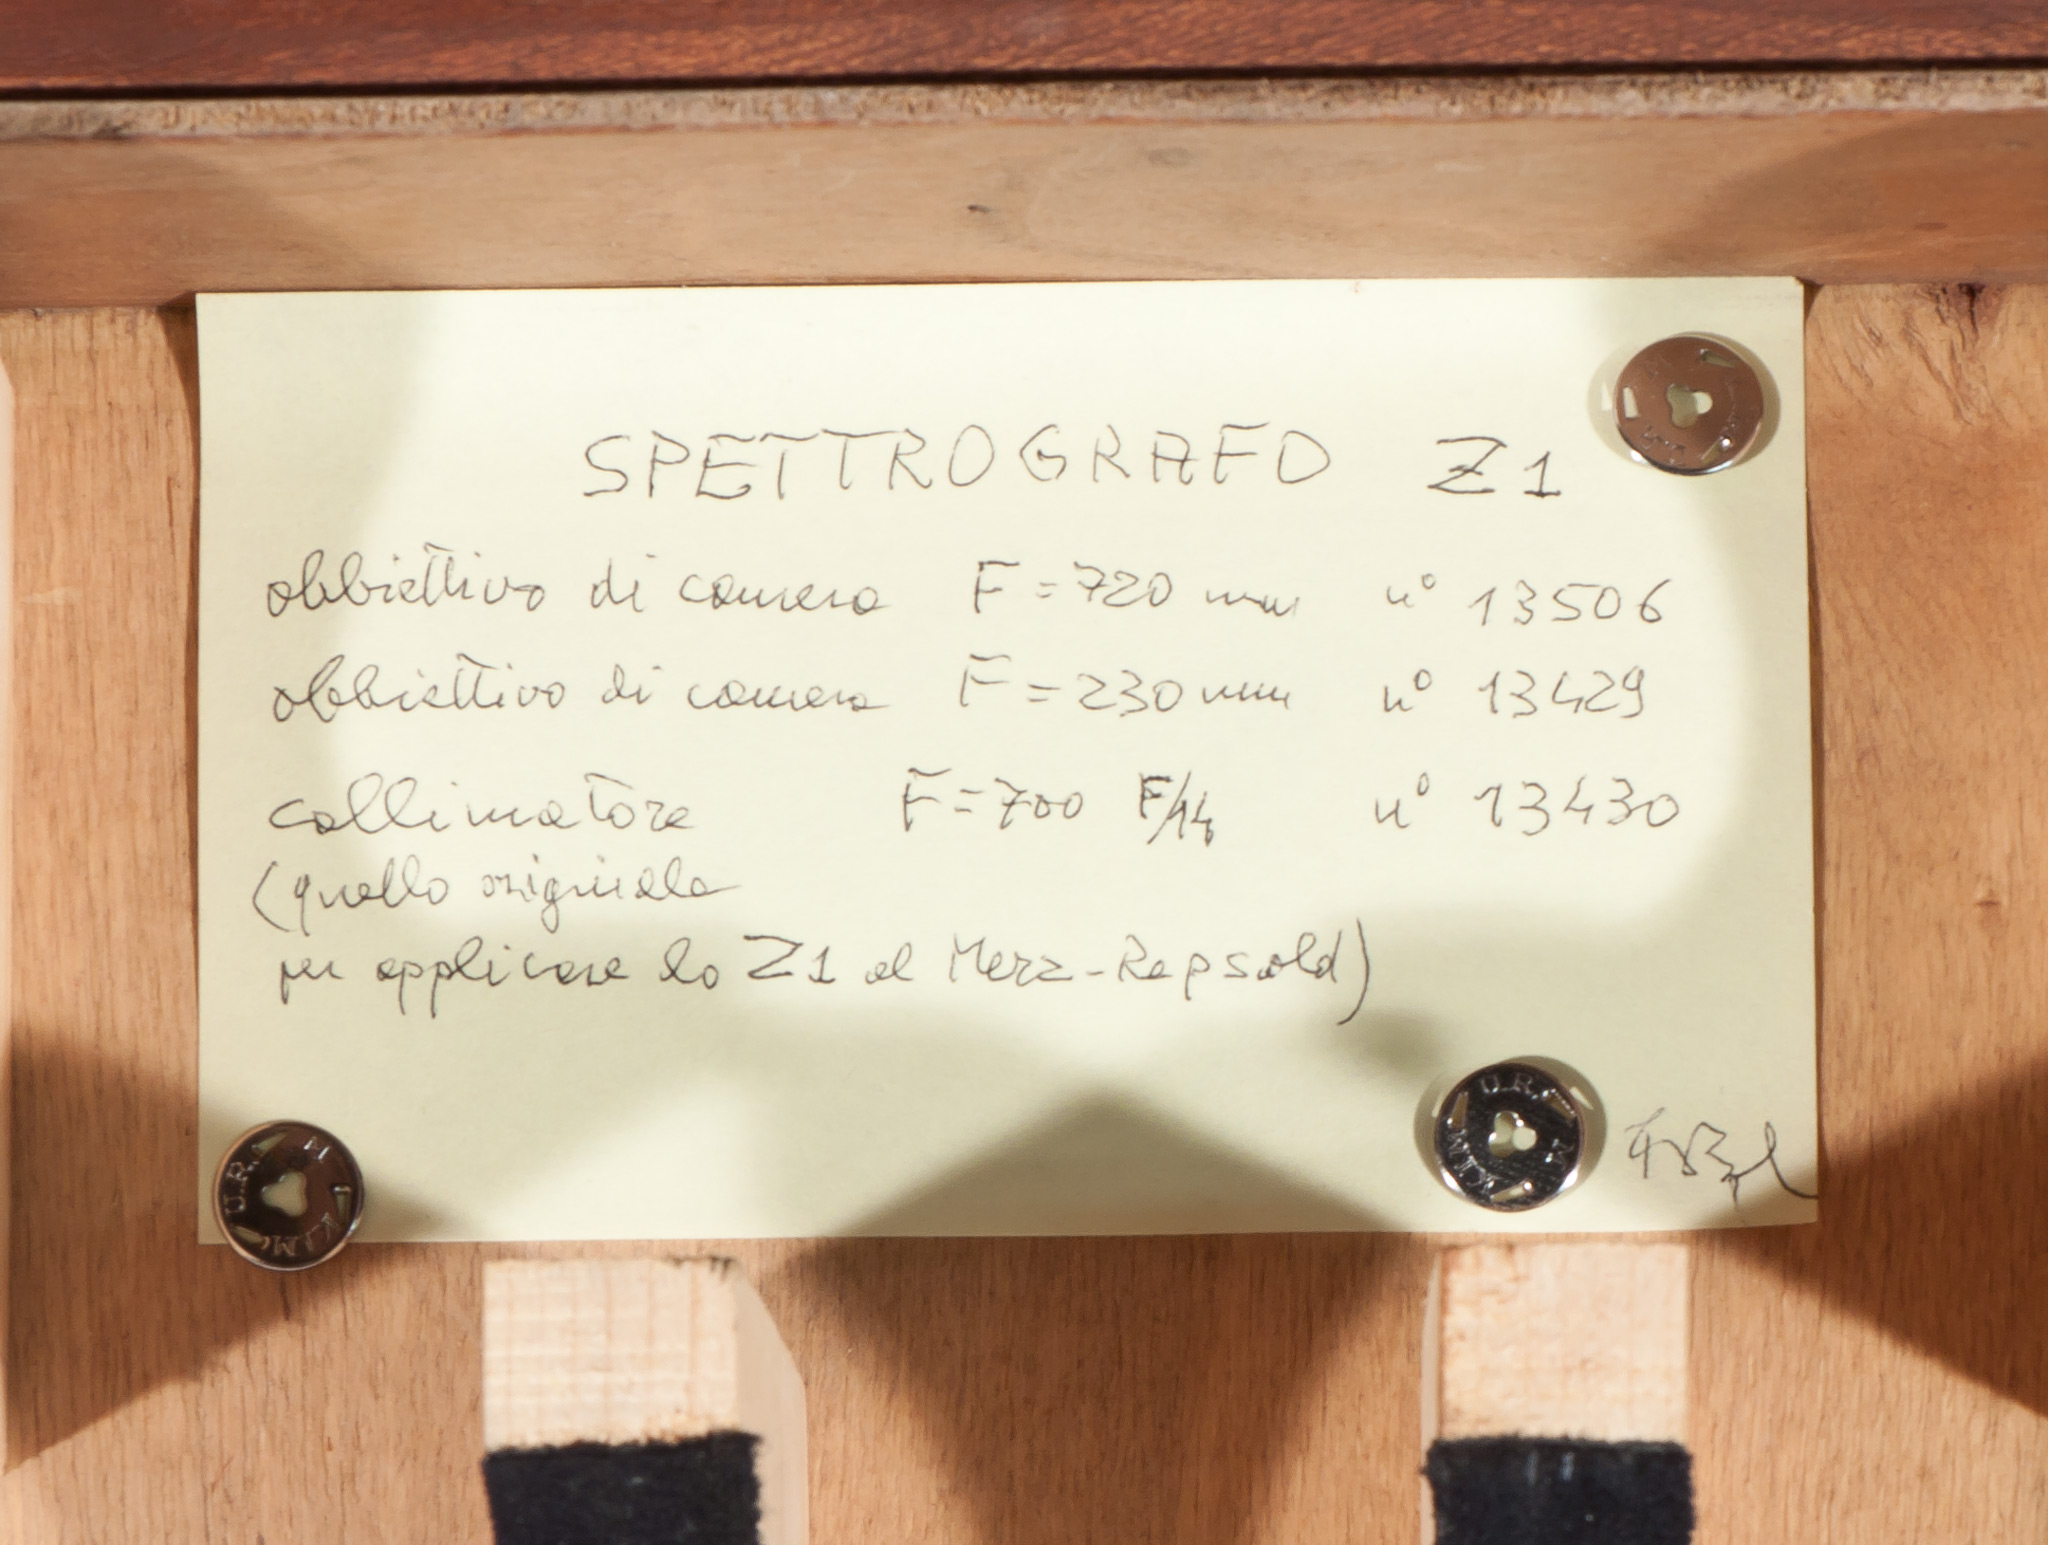 SPETTROGRAFO Z1
obbiettivo di camera F = 720 mm n° 13506
obbiettivo di camera F = 230 mm n° 13429
collimatore F = 700 F/14 n° 13430
(quello originale
per applicare lo Z1 al Merz-Repsold)